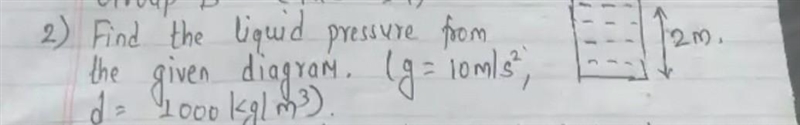 2) Find the liquid pressure from
the given diagram. (g = 10m/s²,
d = 1000 kg/m³).
2m.